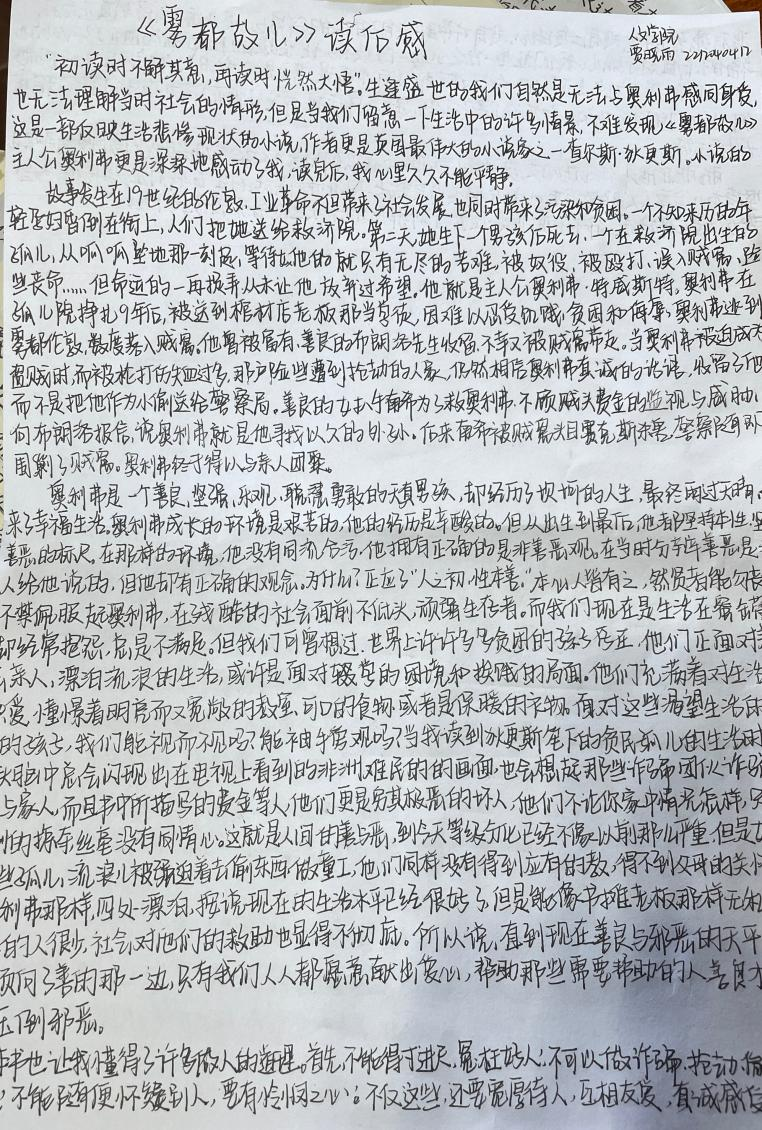 《雾都孤儿》读后感
人文学院
贾晓雨 2212040412
"初读时不解其意,再读时恍然大悟"。生逢盛世的我们自然是无法与奥利弗感同身受,
也无法理解当时社会的情形,但是当我们留意一下生活中的许多情景,不难发现《雾都孤儿》
这是一部反映生活悲惨现状的小说,作者更是英国最伟大的小说家之一查尔斯·狄更斯。小说的
主人公奥利弗更是深深地感动了我,读完后,我心里久久不能平静。
故事发生在19世纪的伦敦,工业革命不但带来了社会发展,也同时带来了污染和贫困。一个不知来历的年
轻孕妇昏倒在街上,人们把她送给救济院。第二天,她生下一个男孩后死去,一个在救济院出生的
孤儿,从呱呱坠地那一刻起,等待他的就只有无尽的苦难,被奴役,被殴打,误入贼窝,险
些丧命……但命运的一再捉弄从未让他放弃过希望。他就是主人公奥利弗·特威斯特,奥利弗在
孤儿院挣扎9年后,被送到棺材店老板那当学徒,因难以忍受饥饿,贫困和侮辱,奥利弗逃到
雾都伦敦,数度落入贼窝。他曾被富有,善良的布朗洛先生收留,不幸又被贼窝带走。当奥利弗被迫成为
盗贼时,而被枪打的失血过多,那户险些遭到抢劫的人家,仍然相信奥利弗真诚的话语,收留了他
而不是把他作为小偷送给警察局。善良的女扒手南希为了救奥利弗,不顾贼头费金的监视与威胁,
向布朗洛报信,说奥利弗就是他寻找以久的外孙。后来南希被贼窝头目赛克斯杀害,警察随即
围剿了贼窝。奥利弗终于得以与亲人团聚。
奥利弗是一个善良,坚强,乐观,聪慧勇敢的天真男孩,却经历了坎坷的人生,最终雨过天晴,
来了幸福生活。奥利弗成长的环境是艰苦的,他的经历是辛酸的。但从出生到最后,他都坚持本性,坚
善恶的标尺。在那样的环境,他没有同流合污,他拥有正确的是非善恶观。在当时分辨善恶是
人给他说的,但他却有正确的观念。为什么?正应了"人之初,性本善。"本心人皆有之,然贤者能勿丧
不禁佩服起奥利弗,在残酷的社会面前不低头,顽强生存着。而我们现在是生活在蜜罐
却经常抱怨,总是不满足。但我们可曾想过,世界上许许多多贫困的孩子存在,他们正面对
亲人,漂泊流浪的生活,或许是面对辍学的困境和挨饿的局面。他们充满着对生活
爱,憧憬着明亮而又宽敞的教室,可口的食物或者是保暖的衣物。面对这些渴望生活
的孩子,我们能视而不见吗?能袖手旁观吗?当我读到狄更斯笔下的贫民孤儿的生活时
脑中总会闪现出在电视上看到的非洲难民的的画面,也会想起那些诈骗团伙诈骗
与家人,而且书中所描写的费金等人,他们更是穷其极恶的坏人,他们不论你家中情况怎样,只
的掠夺丝毫没有同情心。这就是人间的善与恶,到今天等级分化已经不像以前那么严重,但是
些孤儿,流浪儿被强迫着去偷东西,做童工,他们同样没有得到应有的教,得不到父母的关
利弗那样,四处漂泊,按说现在的生活水平已经很好了,但是能像书摊老板那样无私
的人很少,社会对他们的救助也显得不彻底。所以说,直到现在善良与邪恶的天平
倾向了善的那一边,只有我们人人都愿意献出爱心,帮助那些需要帮助的人,善良才
压倒邪恶。
本书也让我懂得了许多做人的道理。首先,不能得寸进尺,冤枉好人;不可以做诈骗,抢劫,偷
不能随便怀疑别人,要有怜悯之心;不仅这些,还要宽厚待人,互相友爱,真诚感